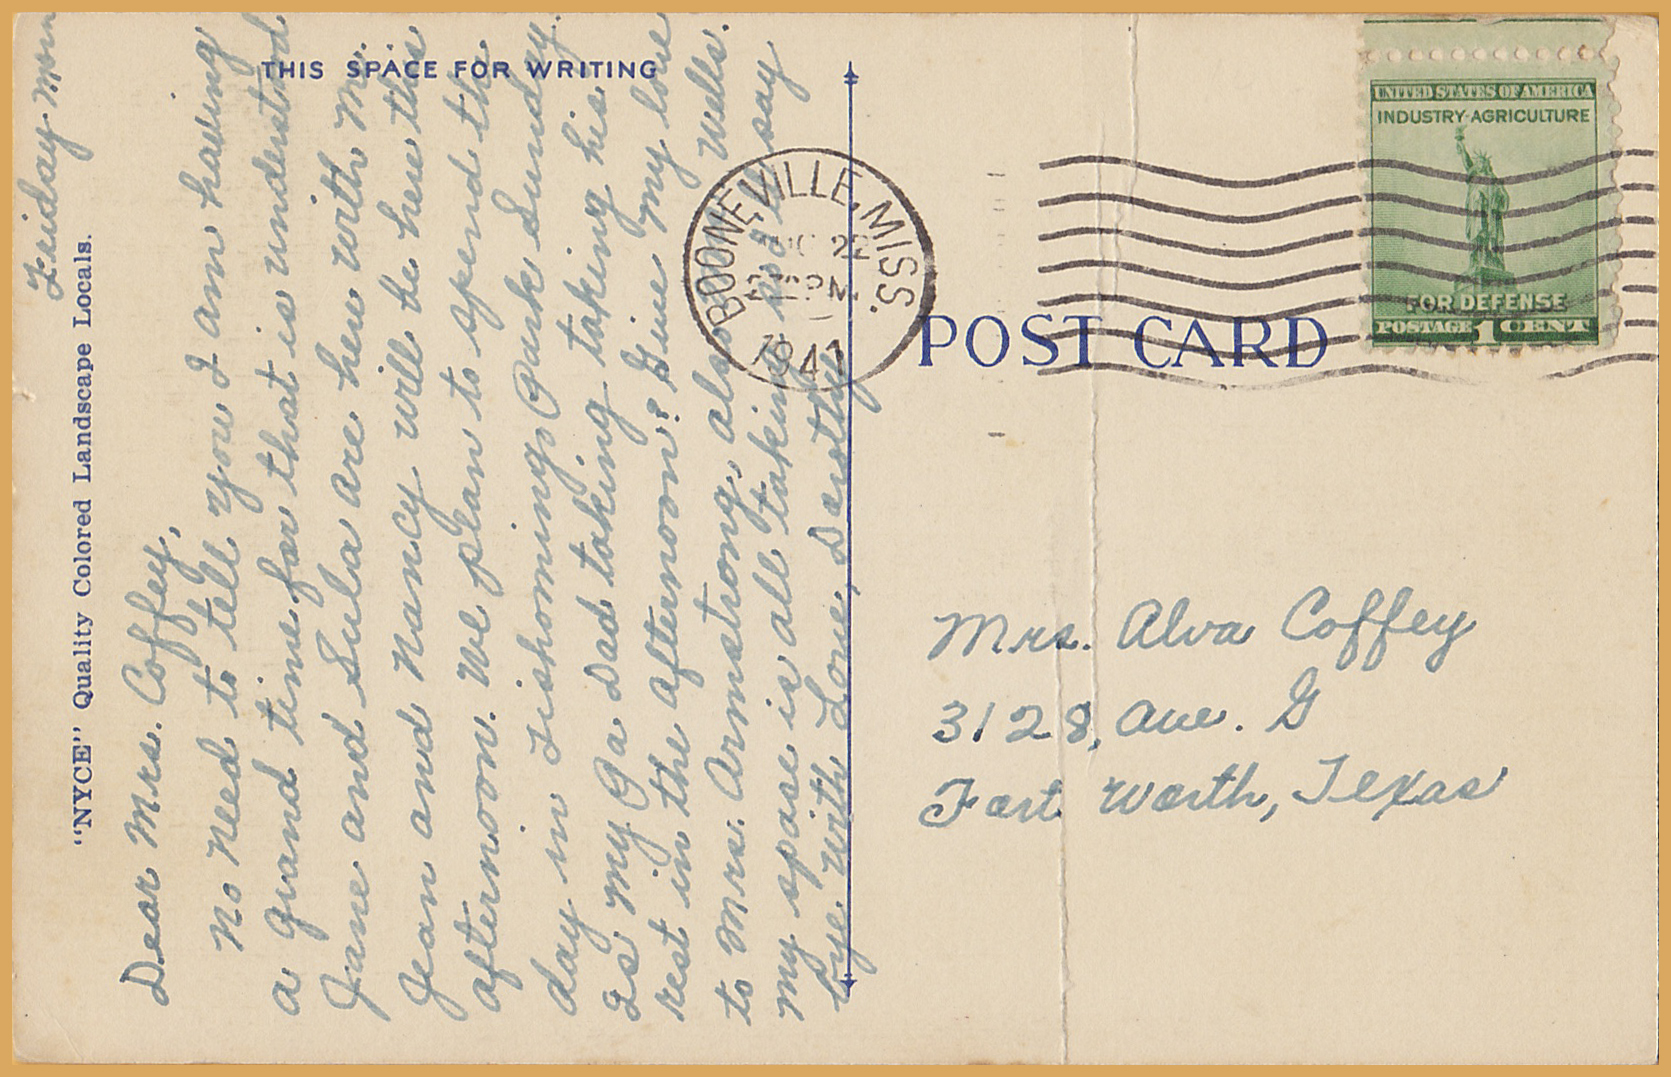 THIS SPACE FOR WRITING
"NYCE" Quality Colored Landscape Locals.
Friday Morn
Dear Mrs. Coffey,
No need to tell you I am having
a grand time for that is understood
Jane and Eula are here with me.
Jean and Nancy will be here this
afternoon. We plan to spend the
day in Tishomingo Park Sunday.
Is my Pa Dad taking taking his
rest in the afternoon? Give my love
to Mrs. Armstrong, also Wells.
My space is all taken so I'll say
bye. With Love, Dorothy
BOONEVILLE, MISS.
22
PM
1941
POST CARD
UNITED STATES OF AMERICA
INDUSTRY-AGRICULTURE
FOR DEFENSE
POSTAGE 1 CENT
Mrs. Alva Coffey
3128, Ave. G
Fort Worth, Texas